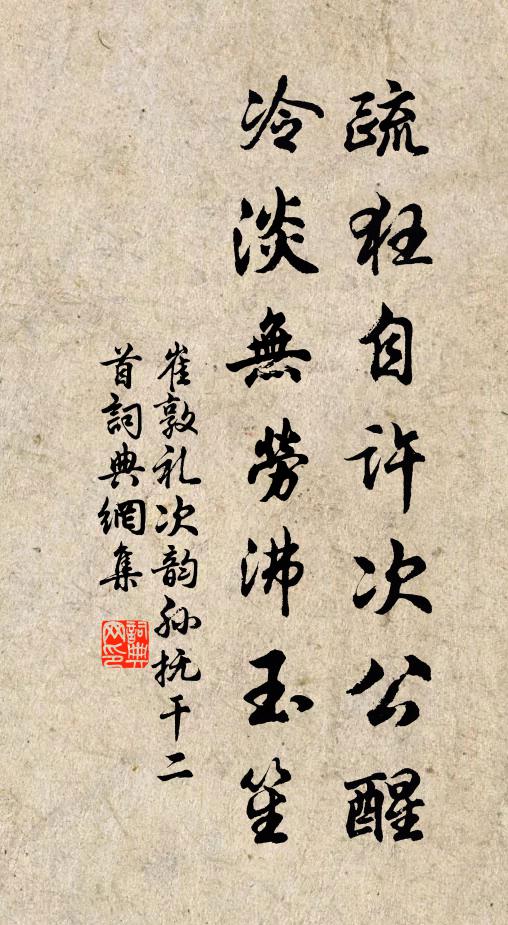 疏狂自许次公醒
冷淡無勞沸玉笙
崔敦礼次韵孙抚干二
首詞典網集
詞典
网印